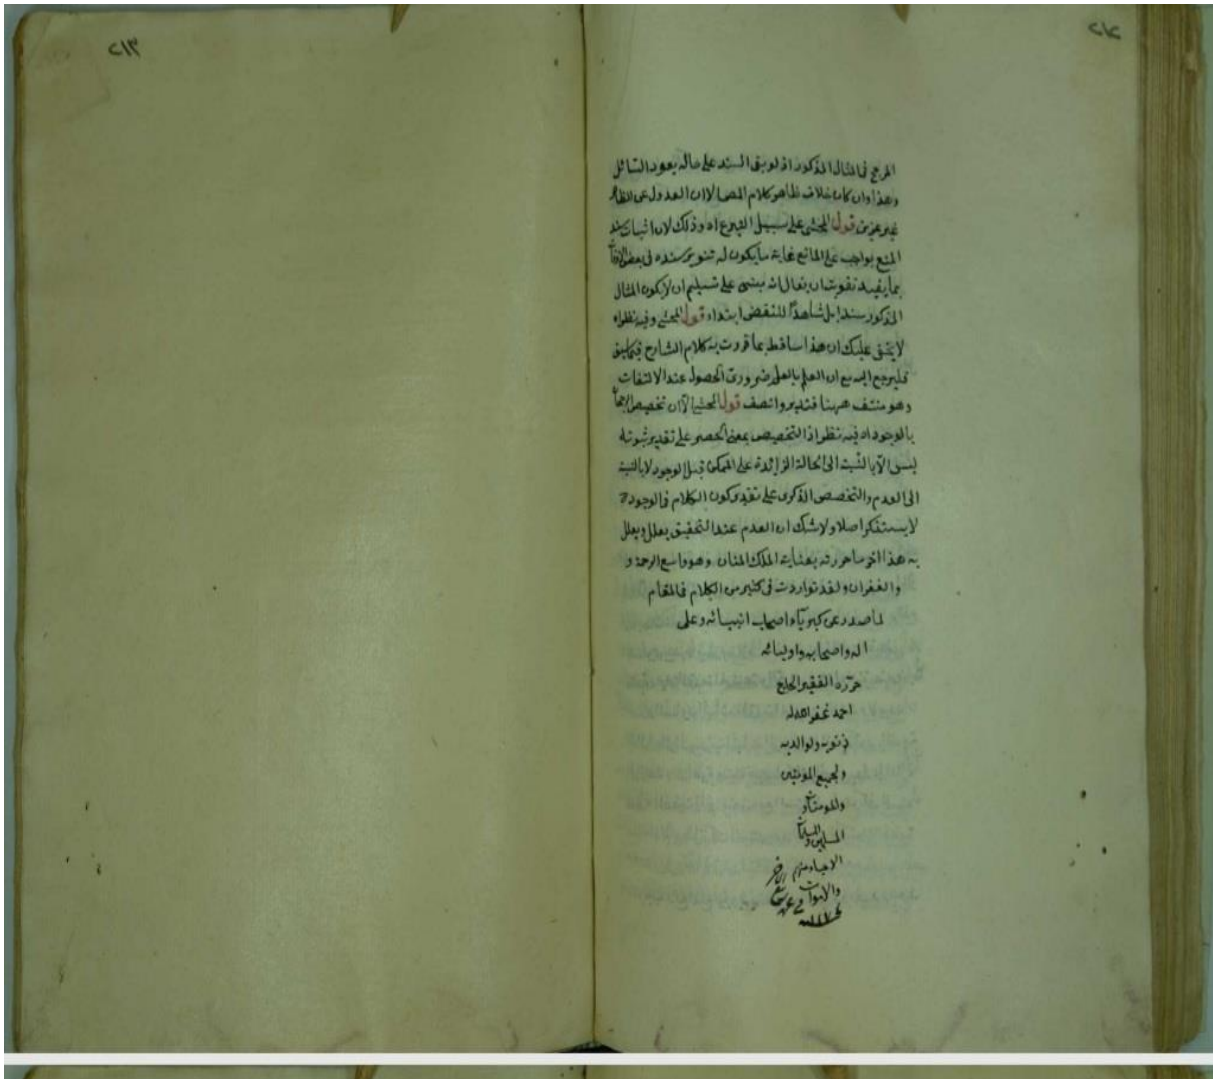 ٢١٢
المرجح في المثال المذكور اذ لو بقي السند على حاله يعود السائل
وهذا وان كان خلاف ظاهر كلام المص الا ان العدول عن الظاهر
غير عزيز قول المحشي على سبيل التبرع اه وذلك لان اثبات سند
المنع بواجب على المانع غاية ما يكون له تنوير سنده في بعض الاوقات
بما يفيد تقويته ان يقال انه مبني على تسليم ان لا يكون المثال
المذكور سندا بل شاهدا للنقض ابتداء قول المحشي وفيه نظر اه
لا يخفى عليك ان هذا ساقط بما قررت به كلام الشارح فيما سبق
فليرجع اليه مع ان العلم بالعلم ضروري الحصول عند الالتفات
وهو منتف ههنا فتدبر وانصف قول المحشي الا ان تخصيص
بالوجود اه فيه نظر اذ التخصيص بمعنى الحصر على تقدير ثبوته
ليس الا بالنسبة الى الحالة الزائدة على الممكن قبل الوجود لا بالنسبة
الى العدم والتخصص الذكرى على تقدير كون الكلام في الوجود
لا يستنكر اصلا ولا شك ان العدم عند التحقيق يعلل ويعلل
به هذا اخر ما حررته بعناية الملك المنان وهو واسع الرحمة و
والغفران ولقد تواردت في كثير من الكلام في المقام
لما صدر عن وا اصحاب انبيائه وعلى
اله واصحابه واوليائه
حرره الفقير الحاج
احمد غفر الله له
ذنوبه ولوالديه
ولجميع المؤمنين
والمومنات و
المسلمين والمسلمات
الاحياء منهم
والاموات
٢١٣